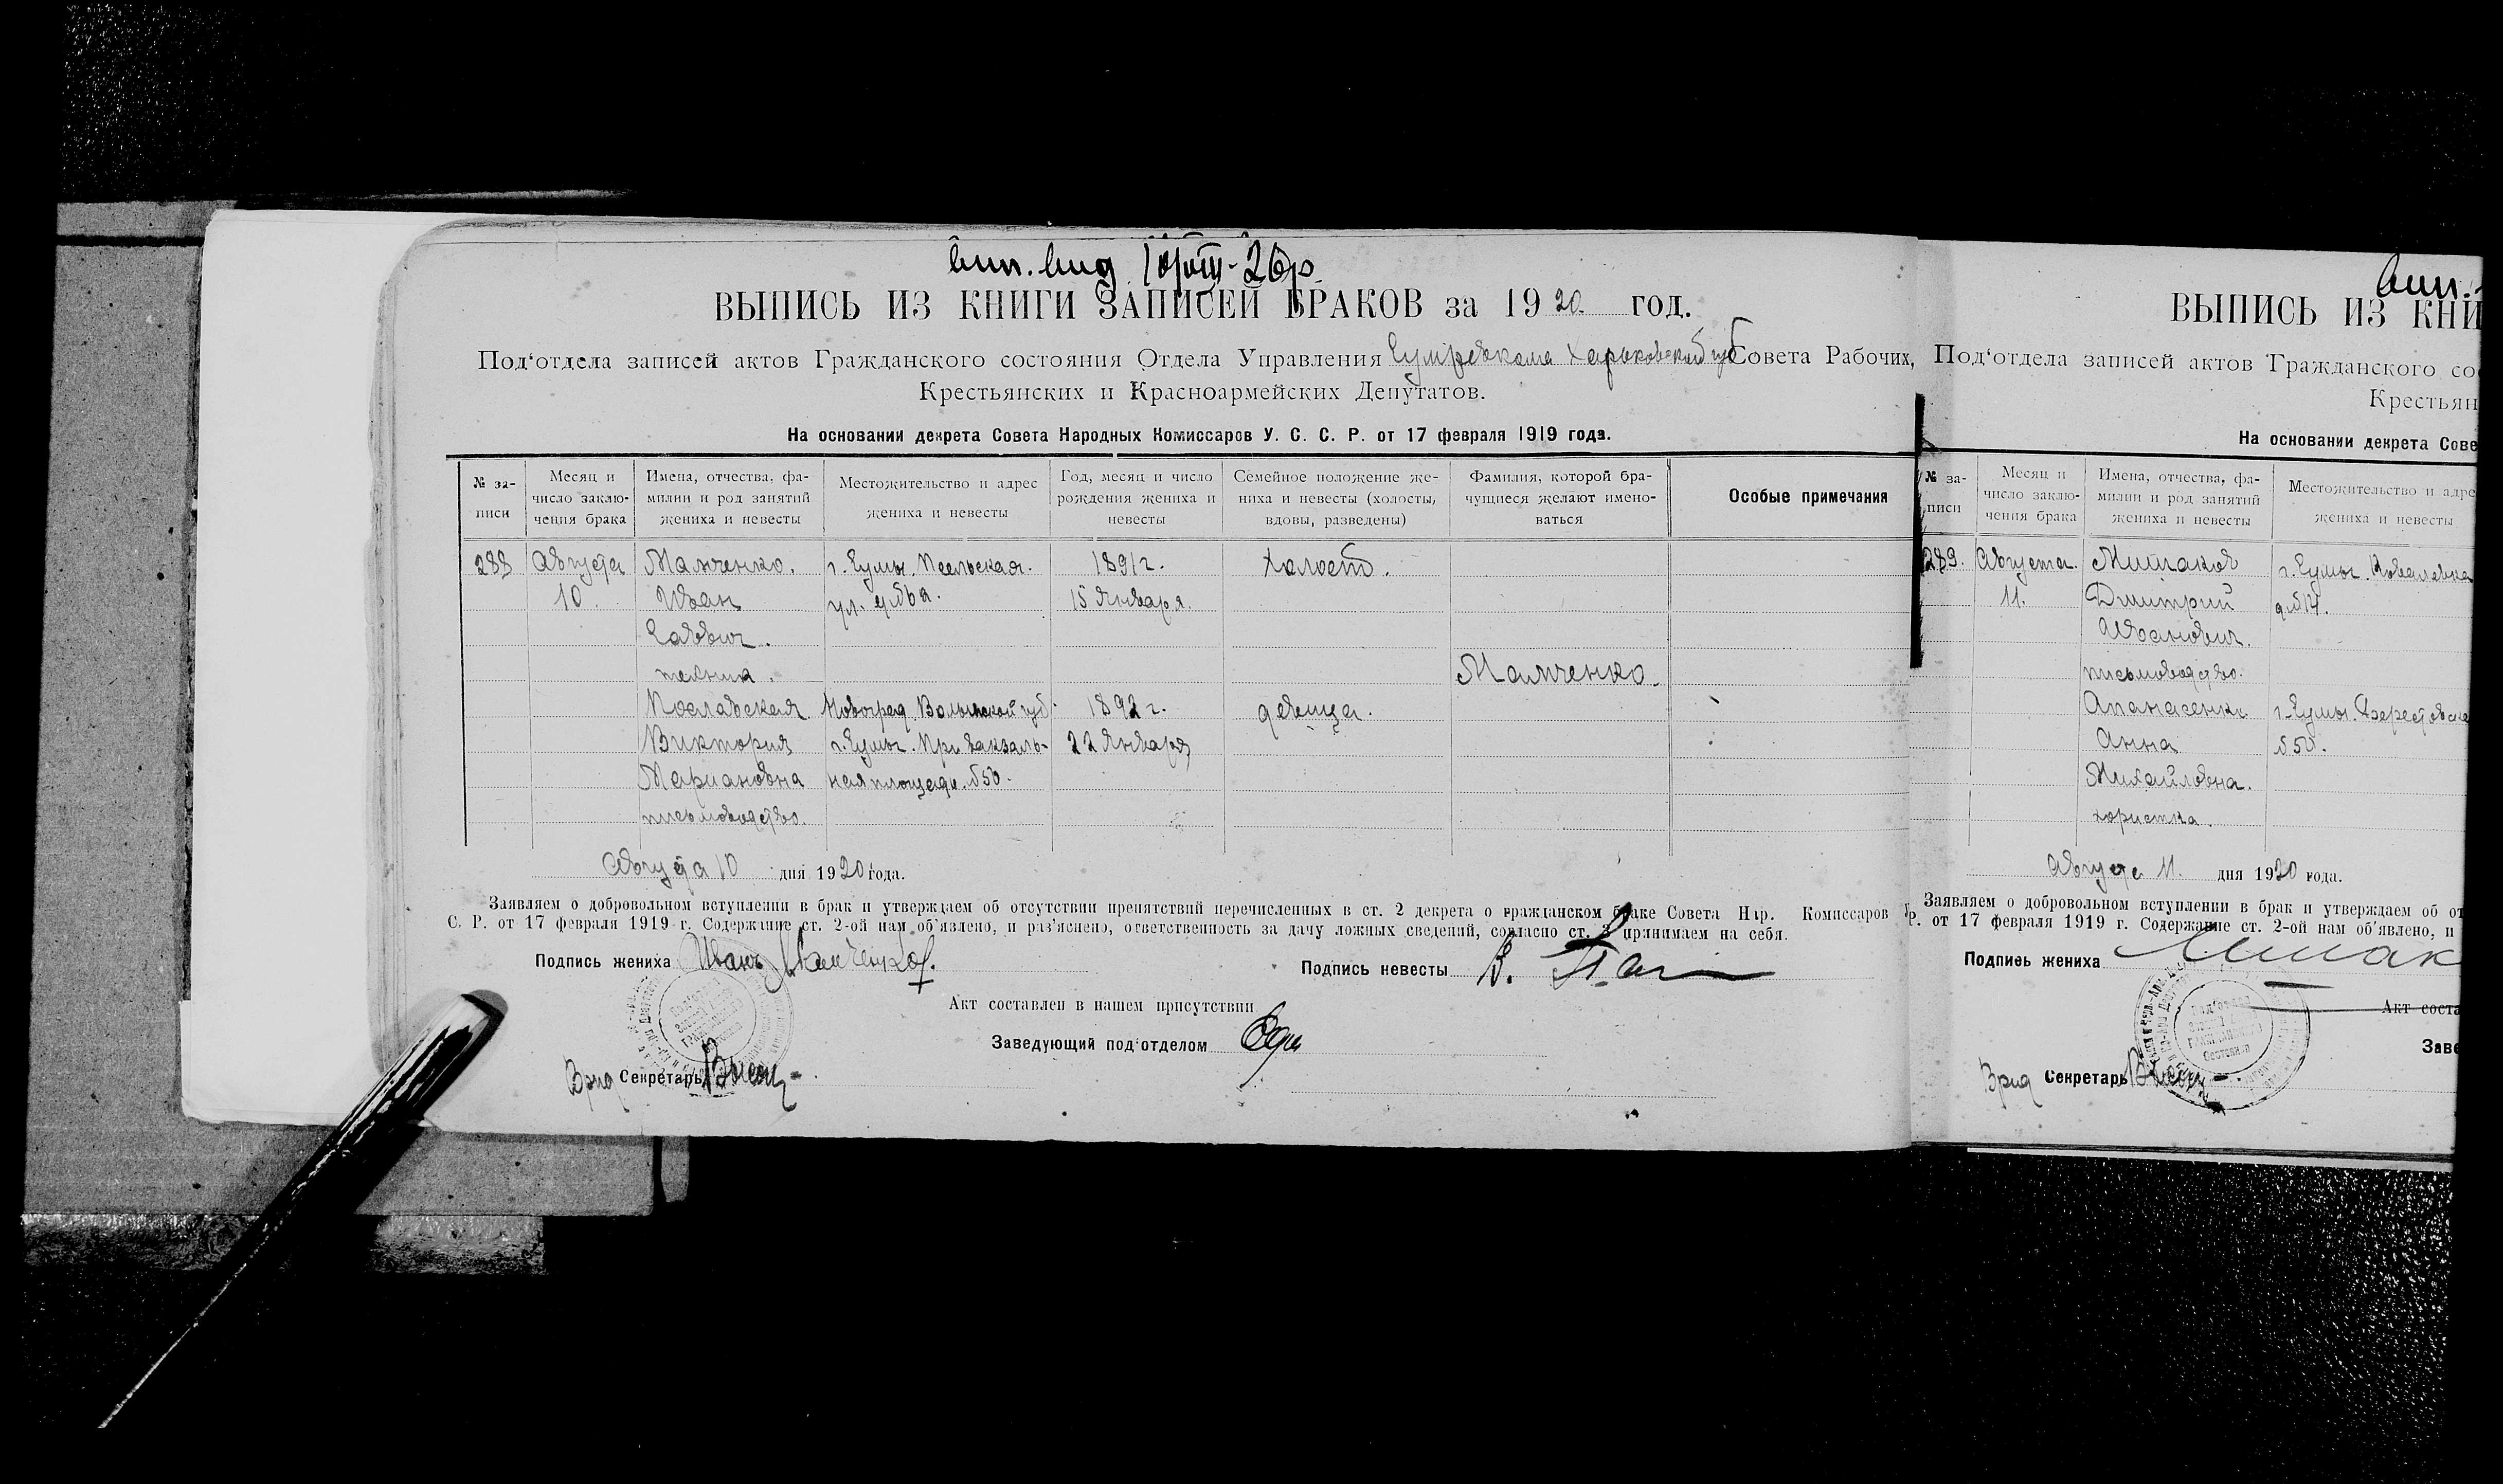 вып. вид 10/VIII-26р
ВЫПИСЬ ИЗ КНИГИ ЗАПИСЕЙ БРАКОВ за 1920. год.
Под‘отдела записей актов Гражданского состояния Отдела Управления Сумревкома Харьковской губ Совета Рабочих,
Крестьянских и Красноармейских Депутатов.
На основании декрета Совета Народных Комиссаров У. С. С. Р. от 17 февраля 1919 года.
№ за-
писи
Месяц и
число заклю-
чения брака
Имена, отчества, фа-
милии и род занятий
жениха и невесты
Местожительство и адрес
жениха и невесты
Год, месяц и число
рождения жениха и
невесты
Семейное положение же-
ниха и невесты (холосты,
вдовы, разведены)
Фамилия, которой бра-
чущиеся желают имено-
ваться
Особые примечания
288 Августа Мамченко. г. Сумы. Псельская. 1891 г. Холост.
10. Иван ул. 15 Января.
Саввич.
техник. Мамченко.
Виктория г. Сумы. Привакзаль- 22 Января
Мариановна ная площадь. №50.
письмоводство.
Новоград. Волынской губ. 1892 г. девица.
Августа 10 дня 1920 года.
Заявляем о добровольном вступлении в брак и утверждаем об отсутствии препятствий перечисленных в ст. 2 декрета о гражданском браке Совета Нар. Комиссаров У.
С. Р. от 17 февраля 1919 г. Содержание ст. 2-ой нам об‘явлено, и раз‘яснено, ответственность за дачу ложных сведений, согласно ст. 3 принимаем на себя.
Подпись жениха Иванъ Мамченко
Подпись невесты В.
Акт составлен в нашем присутствии
Заведующий под‘отделом
Врид Секретарь
вып.
ВЫПИСЬ ИЗ КНИ
Под‘отдела записей актов Гражданского со
Крестьян
На основании декрета Сове
№ за-
писи
Месяц и
число заклю-
чения брака
Имена, отчества, фа-
милии и род занятий
жениха и невесты
Местожительство и адре
жениха и невесты
289. Августа. Мишаков г. Сумы. Ковалевка
11. Дмитрий д. №14.
Иванович.
письмоводство.
Апанасенко г. Сумы.
Анна №50.
Михайловна.
хористка.
Августа 11. дня 1920 года.
Заявляем о добровольном вступлении в брак и утверждаем об от
Р. от 17 февраля 1919 г. Содержание ст. 2-ой нам об‘явлено, и
Подпись жениха Мишак
Акт соста
Заве
Врид Секретарь